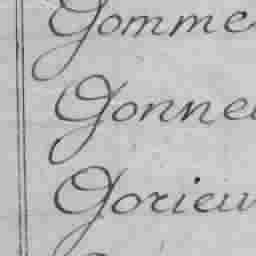 Gomme
Gonne
Gorieu